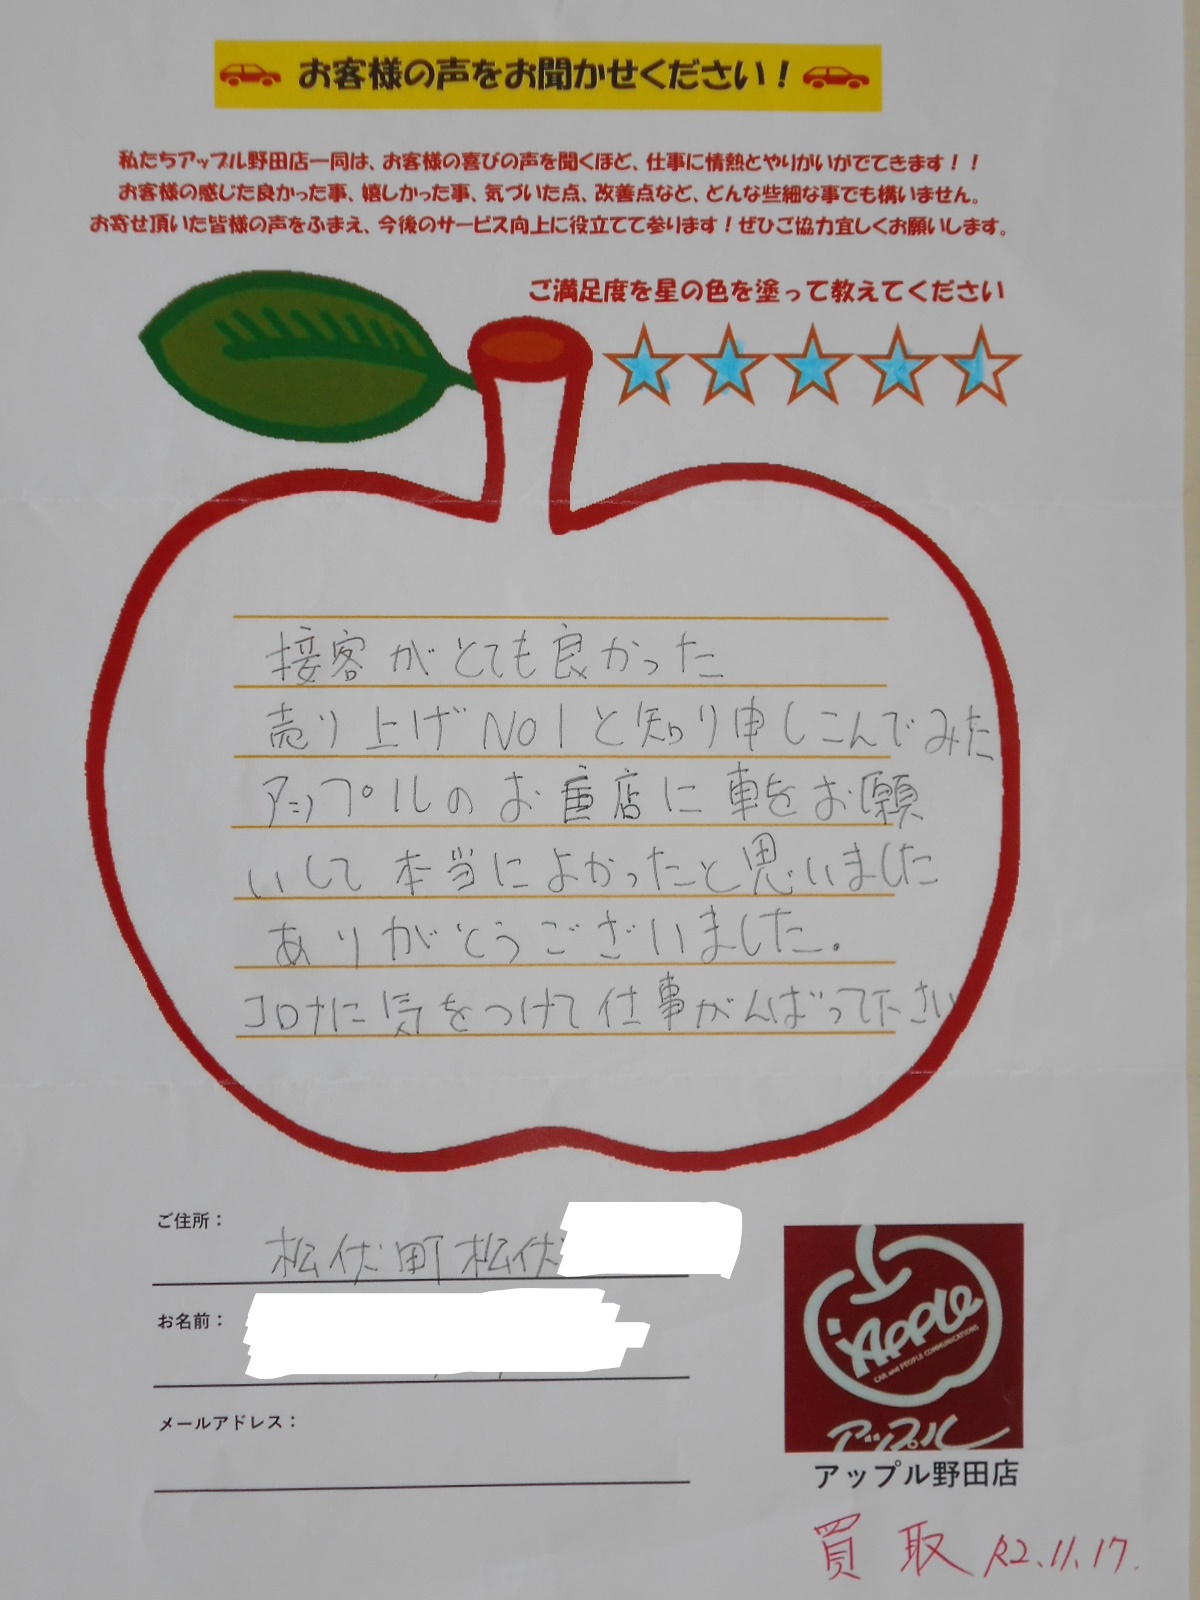 お客様の声をお聞かせください！
私たちアップル野田店一同は、お客様の喜びの声を聞くほど、仕事に情熱とやりがいがでてきます！！
お客様の感じた良かった事、嬉しかった事、気づいた点、改善点など、どんな些細な事でも構いません。
お寄せ頂いた皆様の声をふまえ、今後のサービス向上に役立てて参ります！ぜひご協力宜しくお願いします。
ご満足度を星の色を塗って教えてください
接客がとても良かった
売り上げNO1と知り申しこんでみた
アップルのお店に車をお願
いして本当によかったと思いました
ありがとうございました。
コロナに気をつけて仕事がんばって下さい
ご住所：
松伏町松伏
お名前：
メールアドレス：
APPLE
CAR and PEOPLE COMMUNICATIONS
アップル
アップル野田店
買取 R2.11.17.